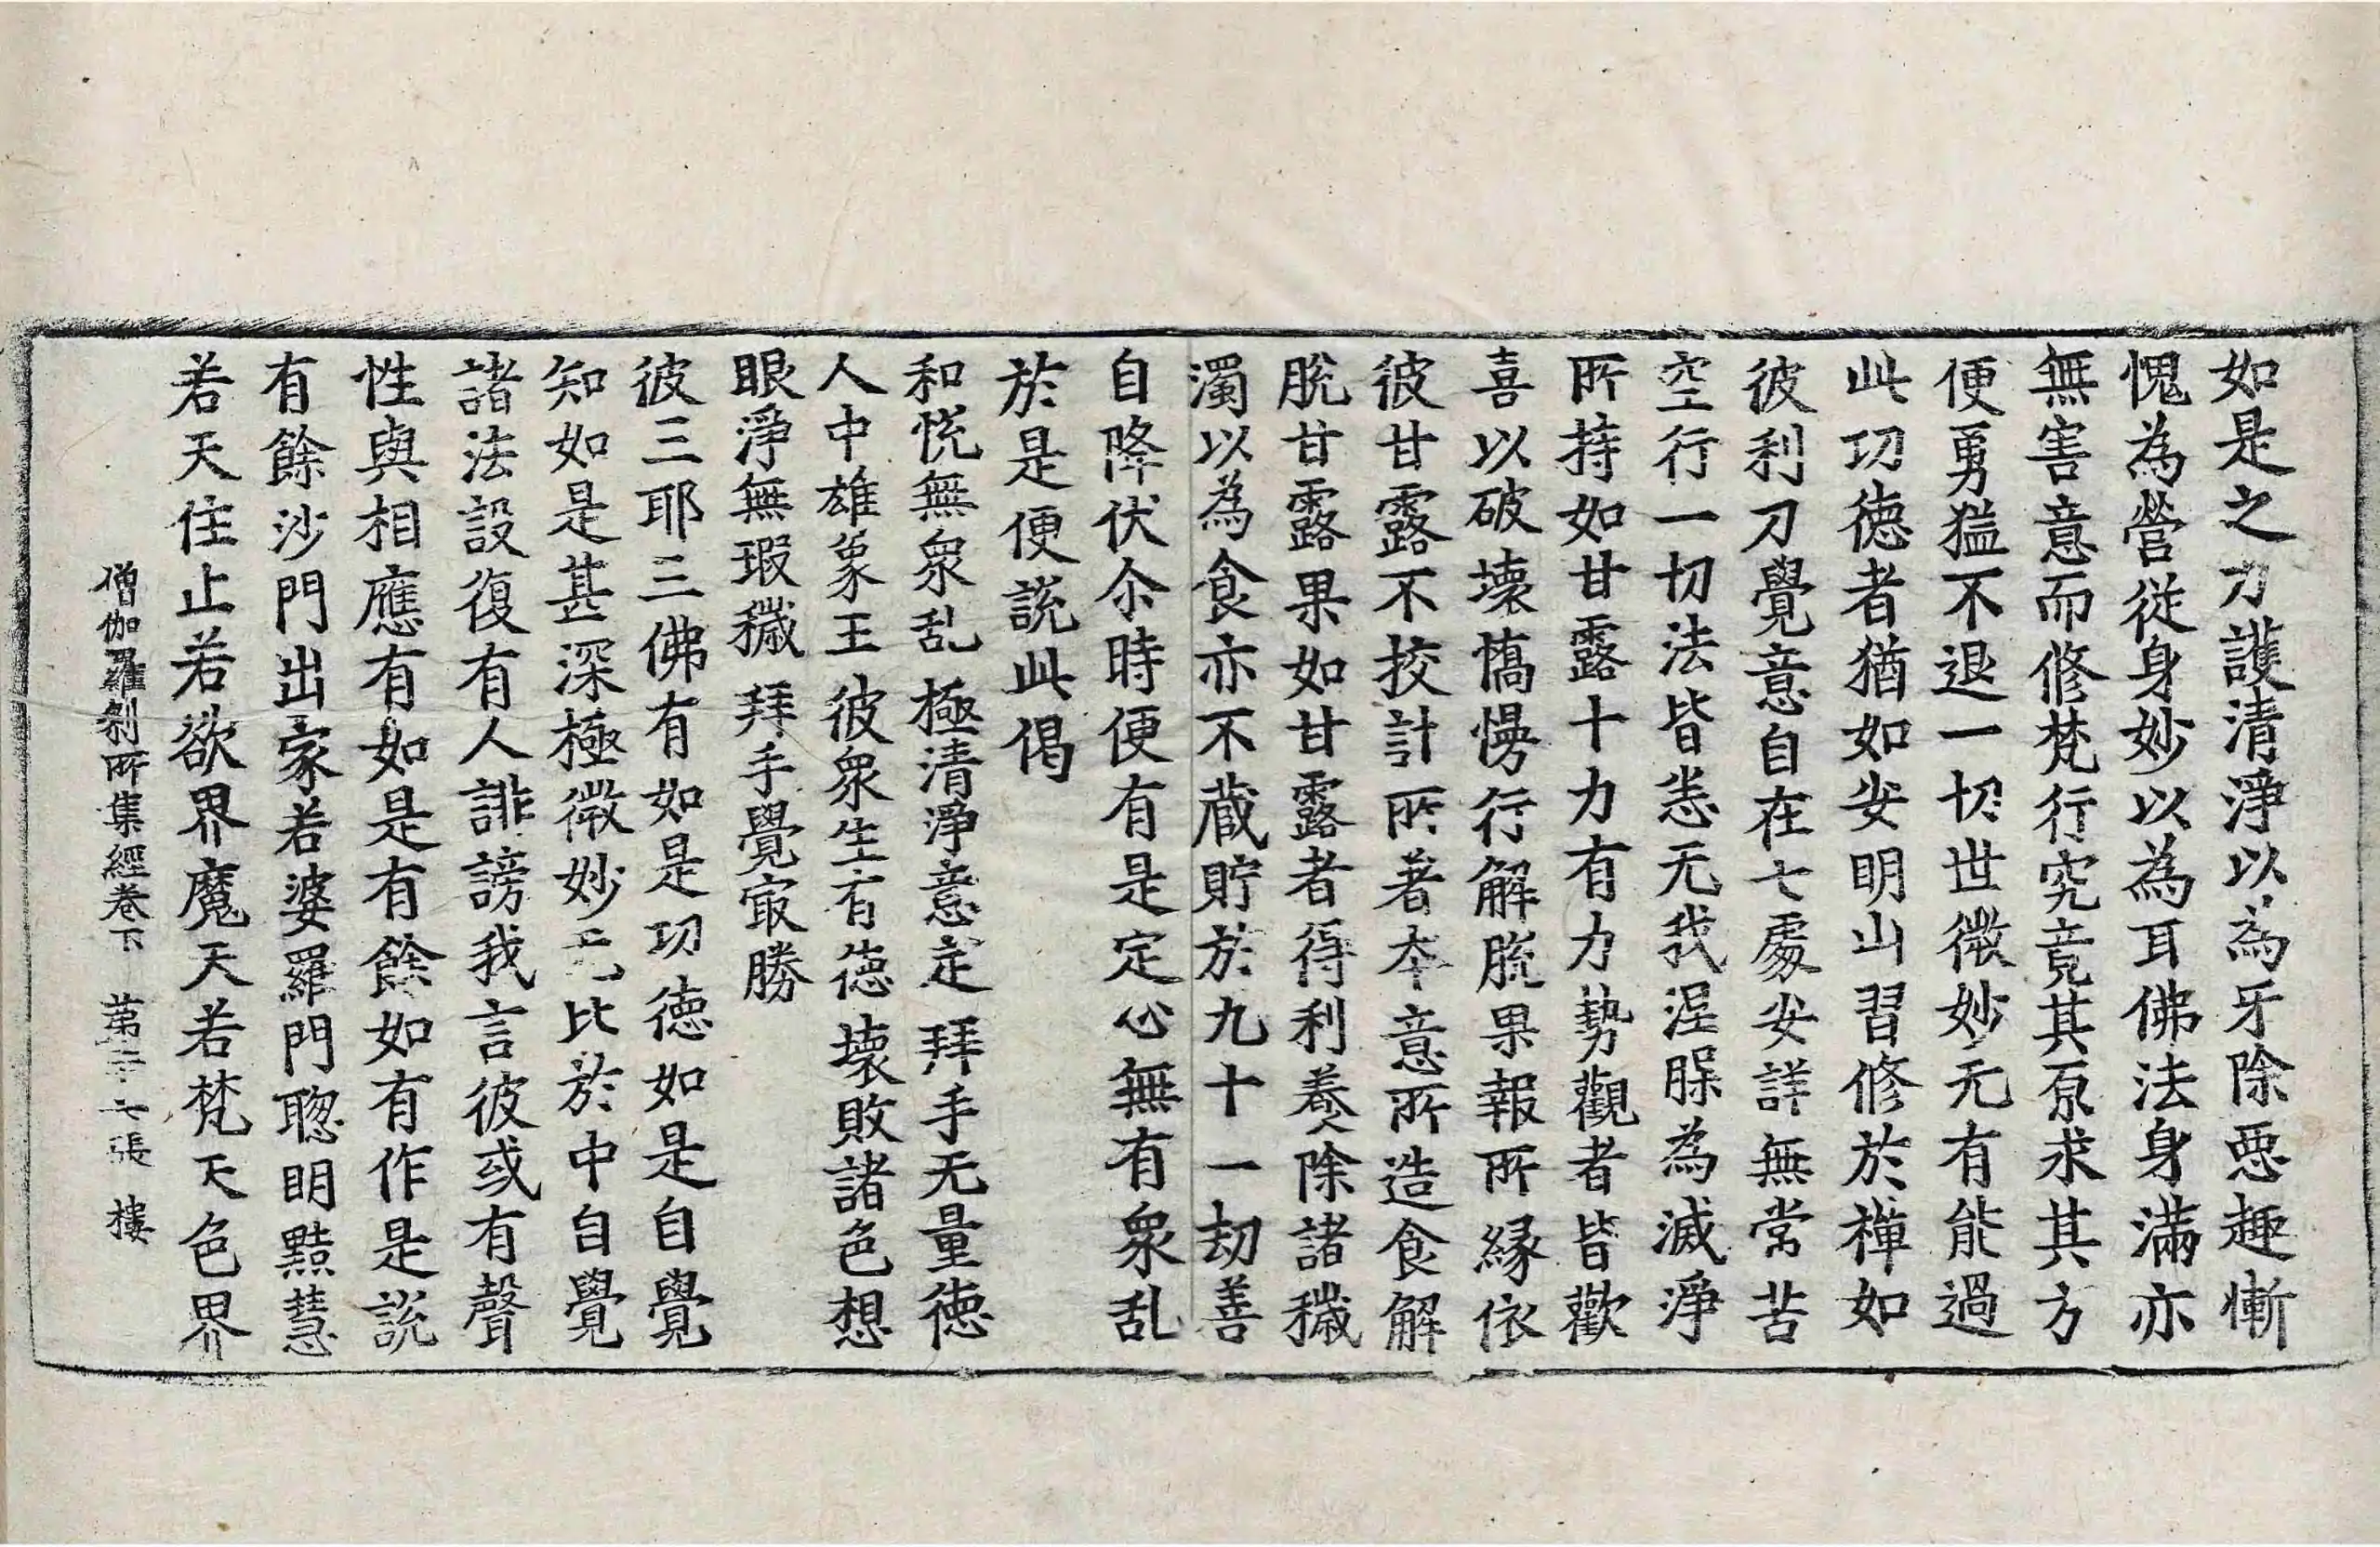 如是之力護清淨以為牙除惡趣慚
愧為營從身妙以為耳佛法身滿亦
無害意而修梵行究竟其原求其方
便勇猛不退一切世微妙无有能過
此功德者猶如安明山習修於禪如
彼利刀覺意自在七處安詳無常苦
空行一切法皆悉无我涅槃為滅淨
所持如甘露十力有力勢觀者皆歡
喜以破壞憍慢行解脫果報所緣依
彼甘露不挍計所著本意所造食解
脫甘露果如甘露者得利養除諸穢
濁以為食亦不藏貯於九十一劫善
自降伏尒時便有是定心無有衆乱
於是便說此偈
和恱無衆乱　極清淨意定　拜手无量德
人中雄象王　彼衆生有德　壞敗諸色想
眼淨無瑕穢　拜手覺冣勝
彼三耶三佛有如是功德如是自覺
知如是甚深極微妙无比於中自覺
諸法設復有人誹謗我言彼或有聲
性與相應有如是有餘如有作是說
有餘沙門出家若婆羅門聦明黠慧
若天住止若欲界魔天若梵天色界
僧伽羅剎所集經卷下　苐二十七張　樓